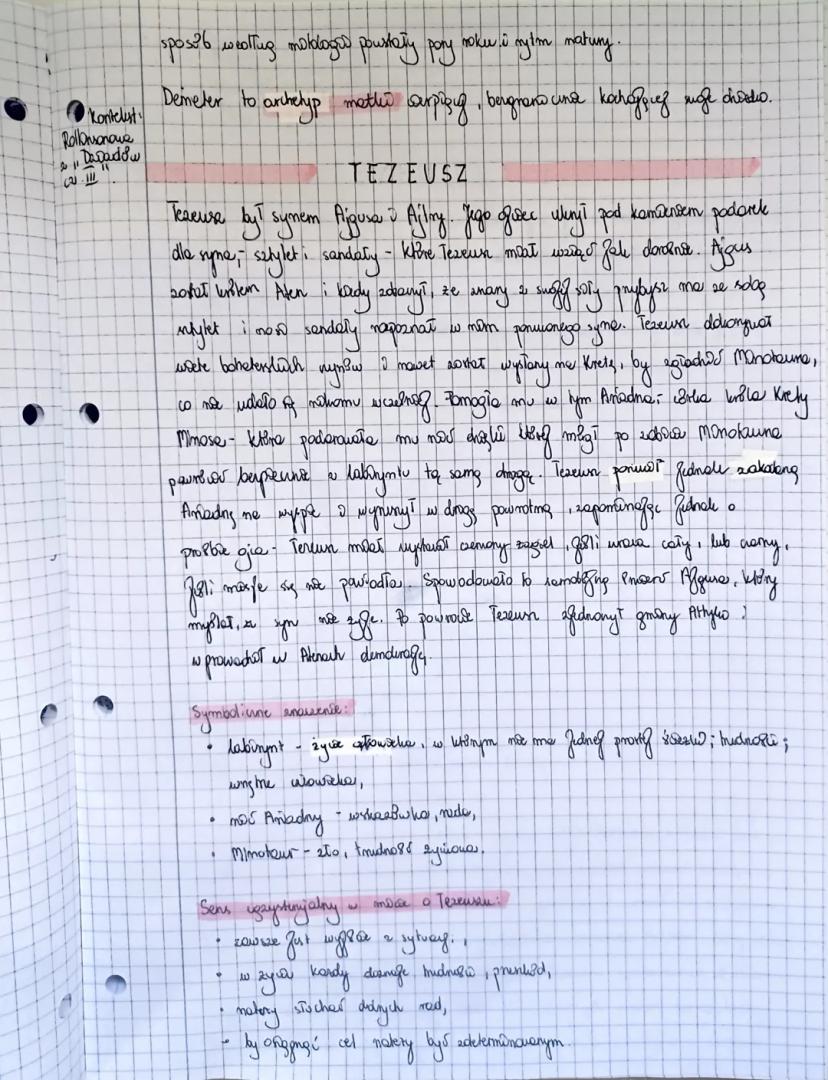 sposób według mitologii powstały pory roku i rytm natury.
Demeter to archetyp matki cierpiącej, bezgranicznie kochającej swoje dziecko.
Kontekst:
Rollisonowa
z "Dziadów
cz. III"
TEZEUSZ
Tezeusz był synem Ajgusa i Ajtry. Jego ojciec ukrył pod kamieniem podarek
dla syna; - sztylet i sandały - które Tezeusz miał wziąć jak dorośnie. Ajgus
został królem Aten i kiedy zobaczył, że znany z swojej siły przybysz ma ze sobą
sztylet i nosi sandały rozpoznał w nim porzuconego syna. Tezeusz dokonywał
wiele bohaterskich czynów i nawet został wysłany na Kretę, by zgładzić Minotaura,
co nie udało się nikomu wcześniej. Pomogła mu w tym Ariadna; - córka króla Krety
Minosa - która podarowała mu nić dzięki której mógł po zabiciu Minotaura
powrócić bezpiecznie z labiryntu tą samą drogą. Tezeusz porzucił jednak zakochaną
Ariadnę na wyspie i wyruszył w drogę powrotną, zapominając jednak o
prośbie ojca - Tezeusz miał wystawić czerwony żagiel, jeśli wraca cały, lub czarny,
jeśli misja się nie powiodła. Spowodowało to samobójczą śmierć Ajgusa, który
myślał, że syn nie żyje. Po powrocie Tezeusz zjednoczył gminy Attyki i
wprowadził w Atenach demokrację.
Symboliczne znaczenie:
• labirynt - życie człowieka, w którym nie ma jednej prostej ścieżki; trudności;
wnętrze człowieka,
• nić Ariadny - wskazówka, rada,
• Minotaur - zło, trudność życiowa.
Sens egzystencjalny w micie o Tezeuszu:
• zawsze jest wyjście z sytuacji,
• w życiu każdy doznaje trudności, przeszkód,
• należy słuchać dobrych rad,
- by osiągnąć cel należy być zdeterminowanym.